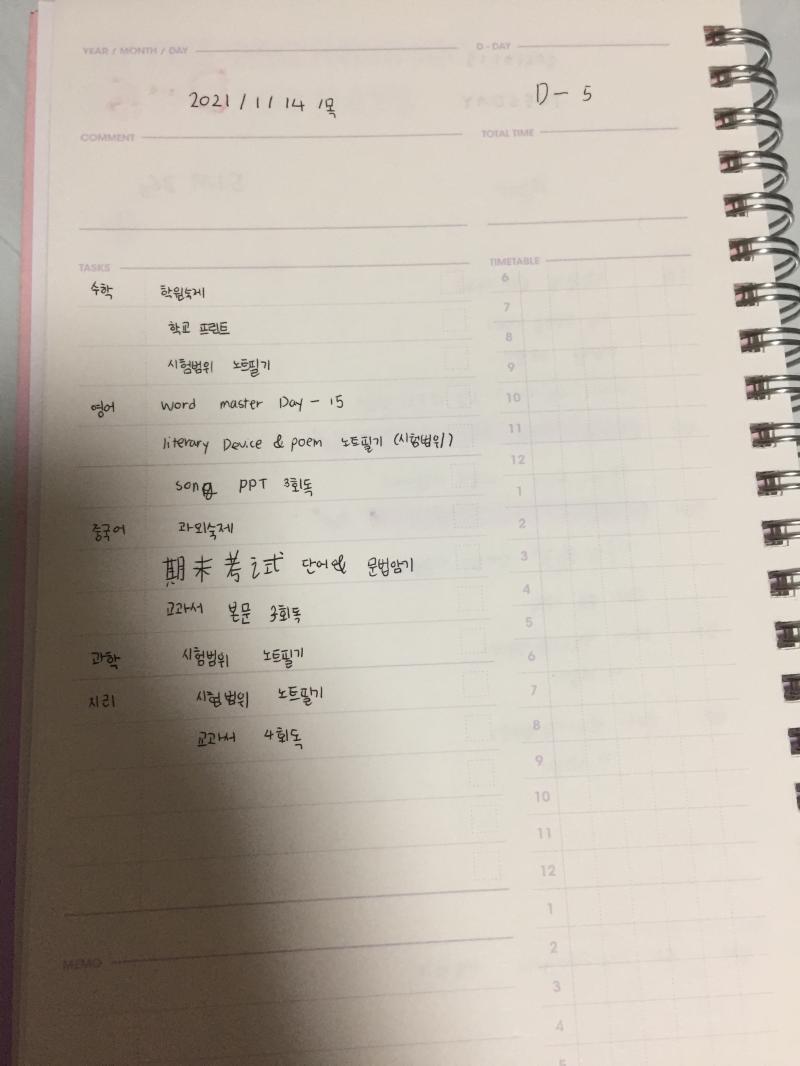 YEAR / MONTH / DAY
D - DAY
2021 / 11 14 /목
D - 5
COMMENT
TOTAL TIME
TASKS
TIMETABLE
수학 학원숙제
학교 프린트
시험범위 노트필기
영어 word master Day - 15
literary Device & poem 노트필기 (시험범위)
song PPT 3회독
중국어 과외숙제
期末考试 단어& 문법암기
교과서 본문 3회독
과학 시험범위 노트필기
지리 시험범위 노트필기
교과서 4회독
6
7
8
9
10
11
12
1
2
3
4
5
6
7
8
9
10
11
12
1
2
3
4
5
MEMO